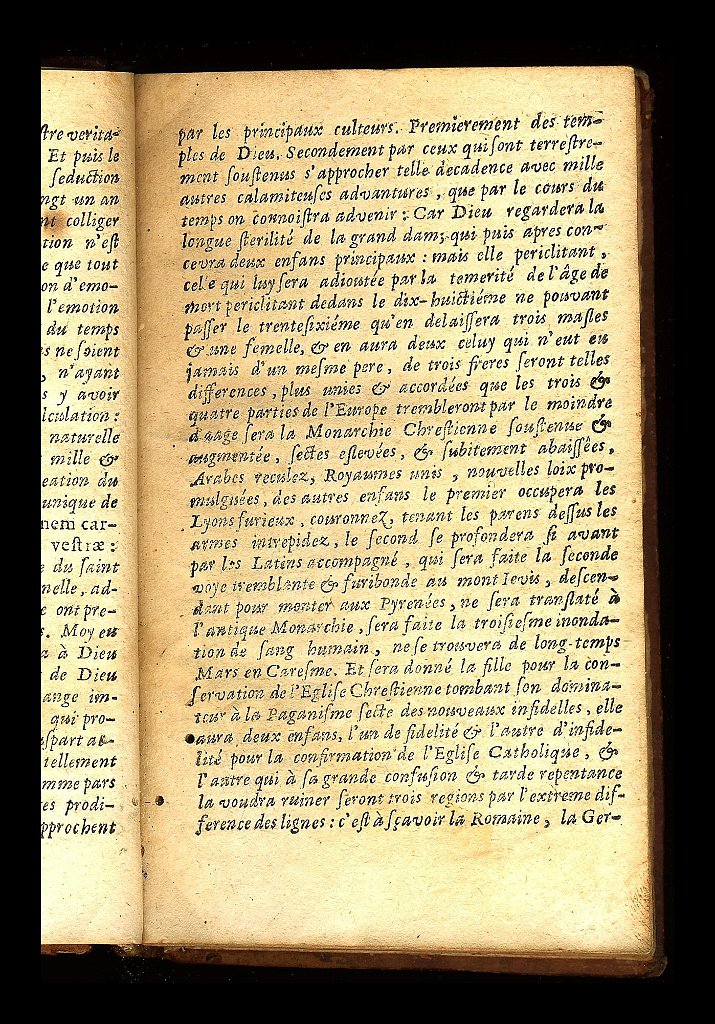 ſtre verita-
Et puis le
ſeduction
ngt un an
nt colliger
tion n'eſt
e que tout
on d'emo-
l'emotion
du temps
s ne ſoient
, n'ayant
s y avoir
lculation :
naturelle
mille &
eation du
unique de
nem car-
veſtræ :
e du ſaint
nelle, ad-
e ont pre-
s. Moy eu
a à Dieu
de Dieu
ange im-
qui pro-
tellement
mme pars
es prodi-
pprochent
par les principaux culteurs. Premierement des tem-
ples de Dieu. Secondement par ceux qui ſont terreſtre-
ment ſouſtenus s'approcher telle decadence avec mille
autres calamiteuſes advantures, que par le cours du
temps on connoiſtra advenir : Car Dieu regardera la
longue ſterilité de la grand dam; qui puis apres con-
cevra deux enfans principaux : mais elle periclitant,
celle qui luy ſera adioutée par la temerité de l'âge de
mort periclitant dedans le dix-huictiéme ne pouvant
paſſer le trenteſixiéme qu'en delaiſſera trois maſles
& une femelle, & en aura deux celuy qui n'eut eu
jamais d'un meſme pere, de trois freres ſeront telles
differences, plus unies & accordées que les trois &
quatre parties de l'Europe trembleront par le moindre
d'aage ſera la Monarchie Chreſtienne ſouſtenue &
augmentée, ſectes eſlevées, & ſubitement abaiſſées,
Arabes reculez, Royaumes unis, nouvelles loix pro-
mulguées, des autres enfans le premier occupera les
Lyons furieux, couronnez, tenant les parens deſſus les
armes intrepidez, le second ſe profondera ſi avant
par les Latins accompagné, qui ſera faite la ſeconde
voye tremblante & furibonde au mont Ievis, deſcen-
dant pour monter aux Pyrenées, ne ſera tranſlaté à
l'antique Monarchie, ſera faite la troiſieſme inonda-
tion de ſang humain, ne ſe trouvera de long-temps
Mars en Careſme. Et ſera donné la fille pour la con-
ſervation de l'Egliſe Chreſtienne tombant ſon domina-
teur à la Paganiſme ſecte des nouveaux infidelles, elle
aura deux enfans, l'un de fidelité & l'autre d'infide-
lité pour la confirmation de l'Egliſe Catholique, &
l'autre qui à ſa grande confuſion & tarde repentance
la voudra ruiner ſeront trois regions par l'extreme dif-
ference des lignes : c'eſt à ſçavoir la Romaine, la Ger-